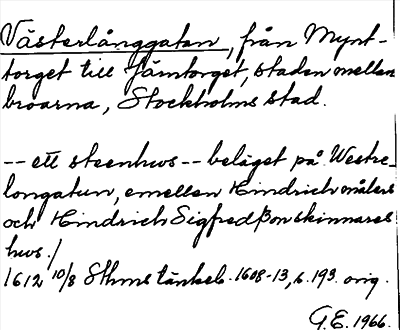 Västerlånggatan, från Mynt-
torget till Järntorget, staden mellan
broarna, Stockholms stad.
-- ett steenhws -- beläget på Westre-
longatun, emellan Hindrich målers
och Hindrich Sigfredßon skinnares
hws./
1612 10/8 Sthms tänkeb. 1608-13, s. 193. orig.
G.E. 1966.